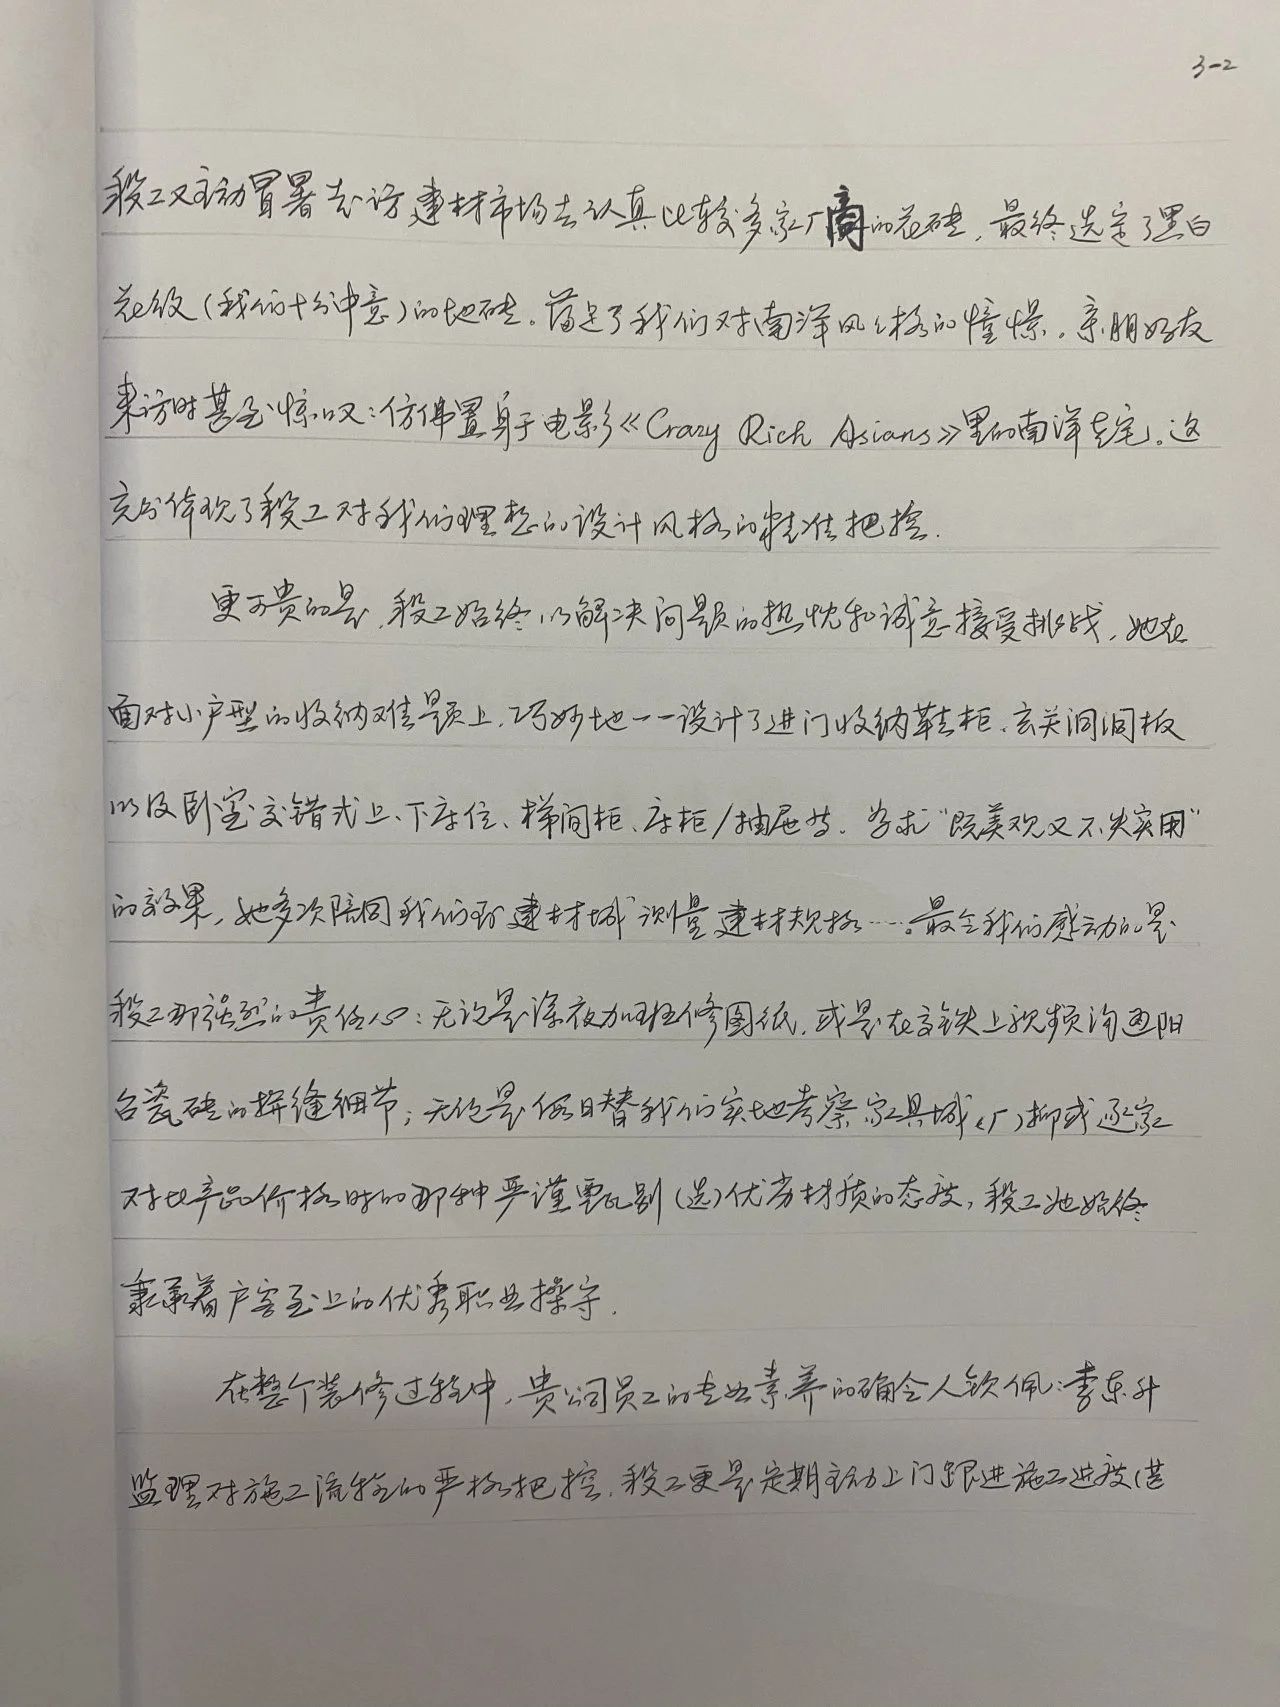 3-2
段工又主动冒暑走访建材市场去认真比较多家厂商的花砖，最终选定了黑白
花纹（我们十分中意）的地砖。满足了我们对南洋风格的憧憬。亲朋好友
来访时甚至惊叹：仿佛置身于电影《Crazy Rich Asians》里的南洋老宅。这
充分体现了段工对我们理想的设计风格的精准把控.
更可贵的是，段工始终以解决问题的热忱和诚意接受挑战，她在
面对小户型的收纳难题上，巧妙地一一设计了进门收纳鞋柜、玄关洞洞板
以及卧室交错式上、下床位、梯间柜、床柜/抽屉等。为求“既美观又不失实用”
的效果，她多次陪同我们到建材城测量建材规格……。最令我们感动的是
段工那强烈的责任心：无论是深夜加班修图纸，或是在高铁上视频沟通阳
台瓷砖的拼缝细节；无论是假日替我们实地考察家具城（厂）抑或逐家
对比产品价格时的那种严谨甄别（选）优劣材质的态度，段工她始终
秉承着户客至上的优秀职业操守.
在整个装修过程中，贵公司员工的专业素养的确令人钦佩：李东升
监理对施工流程的严格把控，段工更是定期主动上门跟进施工进度（甚